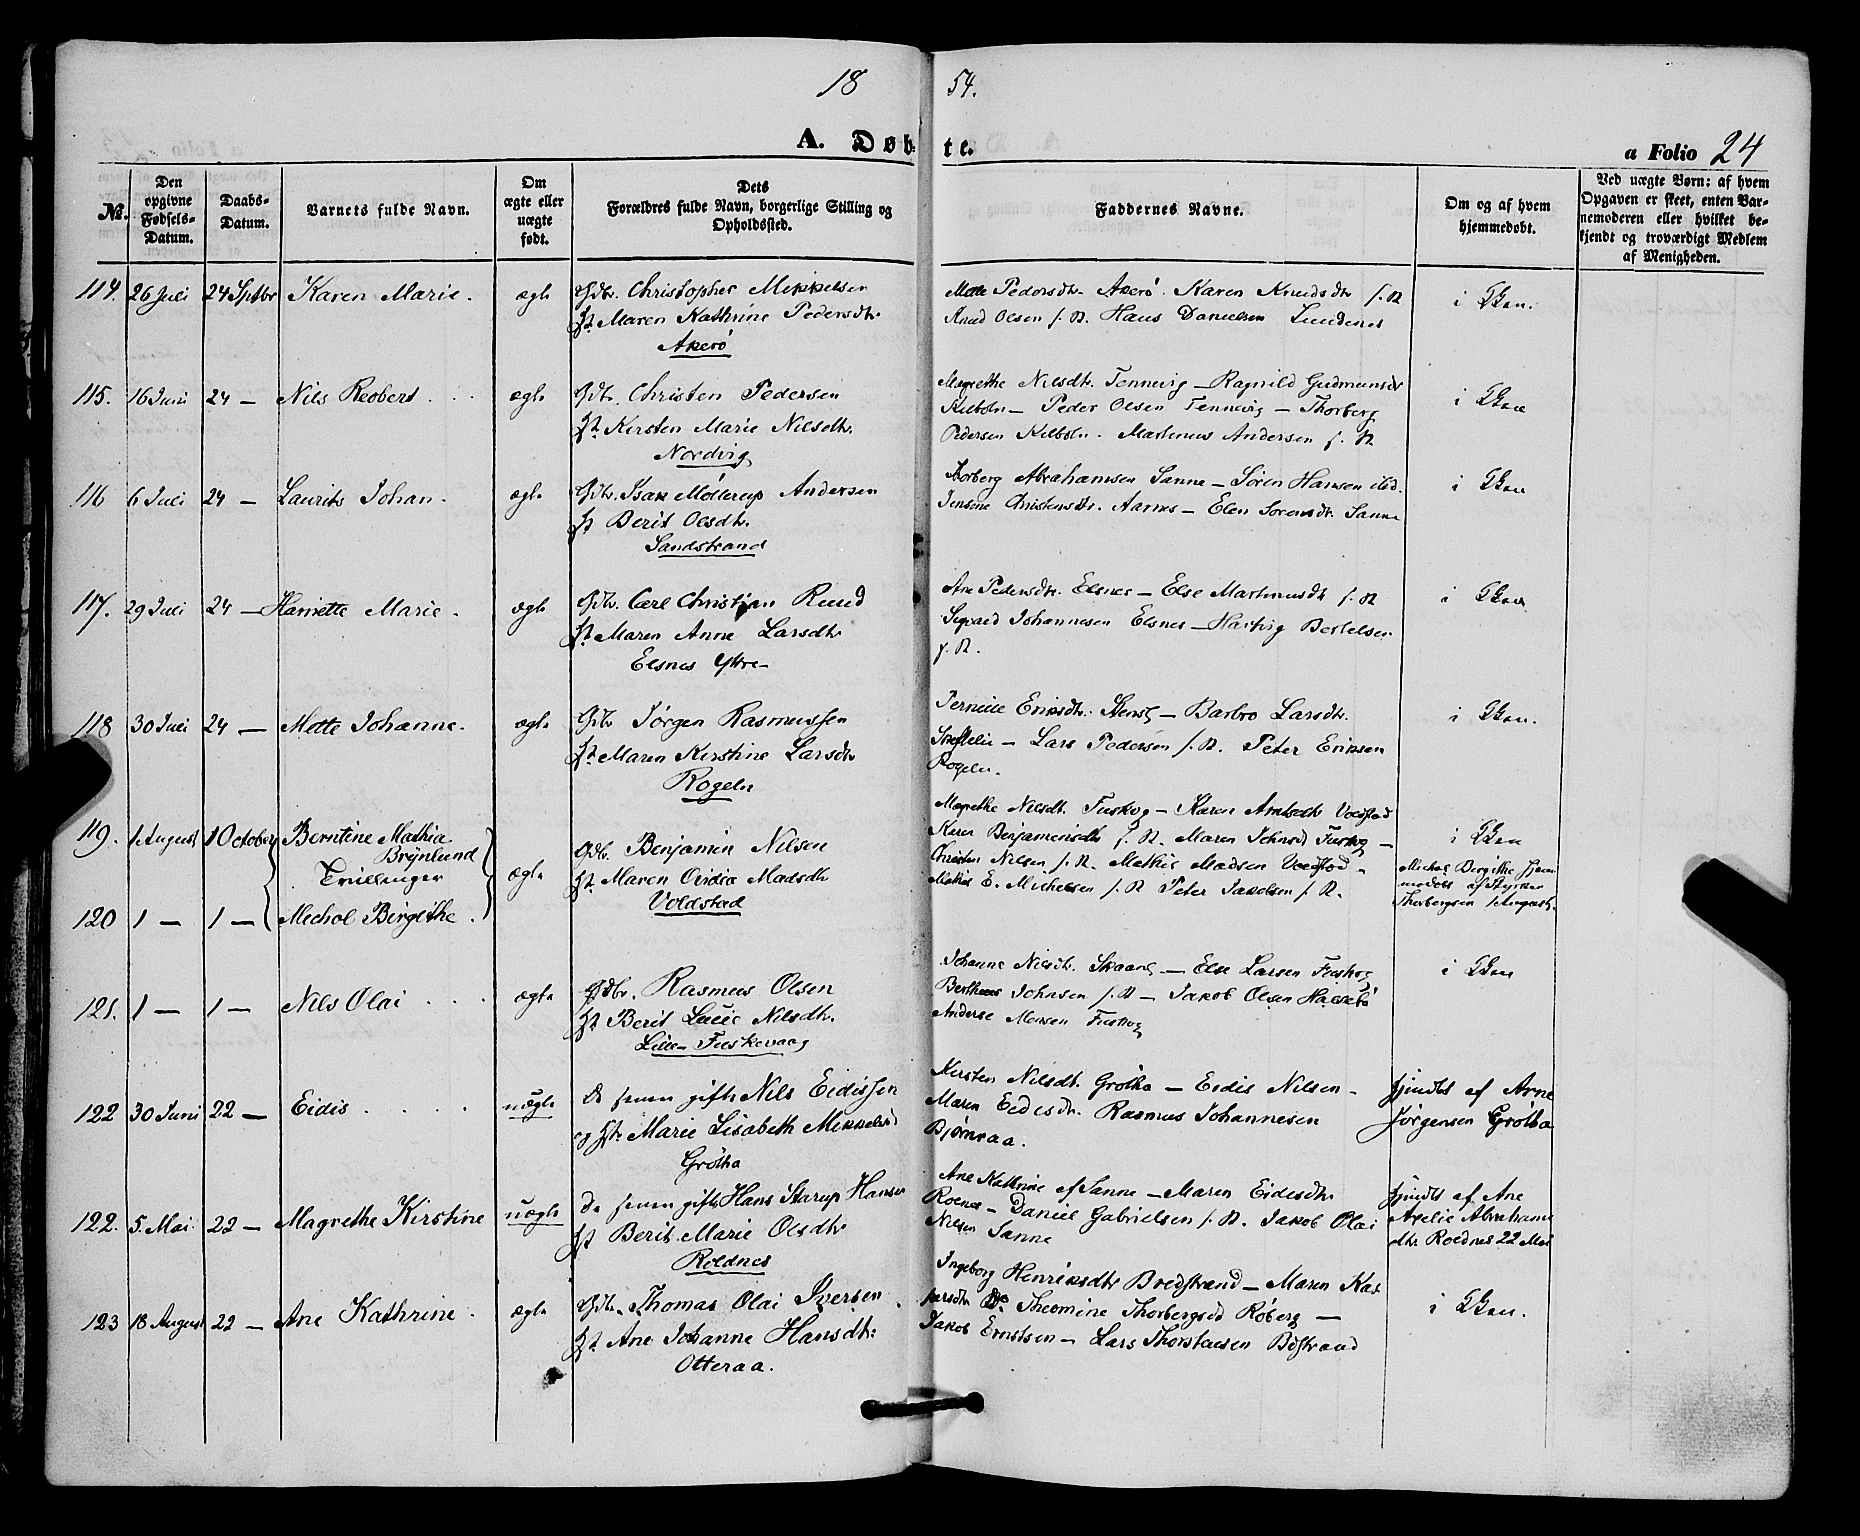 18 54.
A. Døbte.
a Folio 24
No.
Den opgivne Fødsels-Datum.
Daabs-Datum.
Barnets fulde Navn.
Om ægte eller uægte født.
Dets Forældres fulde Navn, borgerlige Stilling og Opholdssted.
Faddernes Navne.
Om og af hvem hjemmedøbt.
Ved uægte Børn: af hvem Opgaven er skeet, enten Barnemoderen eller hvilket bekjendt og troværdigt Medlem af Menigheden.
114. 26 Juli 24 Septbr Karen Marie. ægte Gdbr. Christopher Mikkelsen
Maren Kathrine Pedersdtr.
Akerø
Mette Pedersdtr. Akerø. Karen Knudsdtr f. St.
Knud Olsen f. St. Hans Danielsen Lundenes
i Kken.
115. 16 Juni 24 — Nils Reobert ægte Gdbr. Christen Pedersen
Kirsten Marie Nilsdtr.
Nordvig
Magrethe Nilsdtr. Tennevig — Ragnild Gudmunsdtr
Kilbotn — Peder Olsen Tennevig — Thorberg
Pedersen Kilbotn. Martinus Andersen f. St.
i Kken
116 6 Juli 24 — Laurits Johan. ægte Gdbr. Isak Møllerup Andersen
Berit Olsdtr.
Sandstrand
Thorberg Abrahamsen Sanne — Søren Hansen ibid.
Jensine Christensdtr. Aarnes — Elen Sørensdtr. Sanne
i Kken
117. 29 Juli 24 — Harriette Marie. ægte Gdbr. Carl Christian Ruud
Maren Anne Larsdtr
Elsnes Yttre
Ane Pedersdtr. Elsnes — Else Martinusdtr f. St.
Sivert Johannesen Elsnes — Hartvig Bertelsen
f. St.
i Kken
118 30 Juli 24 — Mette Johanne. ægte Gdbr Jørgen Rasmussen
Maren Kirstine Larsdtr
Rogeln
Pernille Eriksdtr. — Barbro Larsdtr.
— Lars Pedersen f. St. Peter Eriksen
Rogeln.
i Kken.
119. 1 August 1 October Berntine Mathia
Brynlund
Trillinger
120 1 — 1 — Mechol Birgithe.
ægte Gdbr. Benjamin Nilsen
Maren Ovidia Madsdtr
Voldstad
Magrethe Nilsdt. Fuskog — Karen Arntsdtr Voldstad
Karen Benjaminsdtr f. St. Maren Johnsd Fuskog —
Christen Nilsen f. St. Mathis Madsen Voldstad —
Mathis E. Mikelsen f. St. Peter Jakobsen f. St.
i Kken
Michol Birgithe hjem
medøbt af Styrker
Thorbergsen 1 August.
121. 1 — 1 — Nils Olai ægte Gdbr. Rasmus Olsen
Berit Lucie Nilsdtr.
Lille-Fuskevaag
Johanne Nilsdtr. — Else Larsen Fuskog
Johnsen f. St — Jakob Olsen Halsebø
Anderse Monsen Fuskog
i Kken
122 30 Juni 22 — Eidis uægte Nils Eidissen
og Marie Lisabeth Mikkelsd
Grøtha
Kirsten Nilsdt. Grøtha — Eidis Nilsen —
Maren Eidisdtr. Rasmus Johannesen
Bjørnraa.
hjmdbt af Arne
Jørgensen Grøtha
122. 5 Mai. 22 — Magrethe Kirstine uægte Hans Starup Hansen
Berit Marie Olsdtr
Roldnes
Ane Kathrine af Sanne — Maren Eidesdtr
Rolnes — Daniel Gabrielsen f. St. Jakob Olai
Nilsen Sanne
hjmdbt af Ane
Axelie Abrahams
dtr. Roldnes 22 Mai
123 18 August 22 — Ane Kathrine. ægte Gdbr. Thomas Olai Iversen
Ane Johanne Hansdtr.
Otteraa.
Ingeborg Henriksdtr Bredstrand — Maren Kas
persdtr Do. Theomine Thorbergsd Røberg —
Jakob Ernstsen — Lars Thorstensen Bøstrand
i Kken.